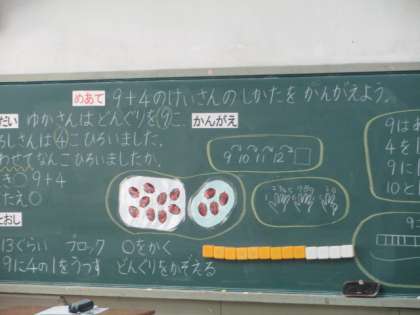 めあて 9+4のけいさんのしかたをかんがえよう。
だい ゆかさんはどんぐりを9こ、
ろしさんは4こひろいました。
わせてなんこひろいましたか。
き 9+4
たえ
とおし
13ぐらい ブロック ○をかく
9に4の1をうつす どんぐりをかぞえる
かんがえ
9 10 11 12
9はあ
4を1
9に1
10と
9に